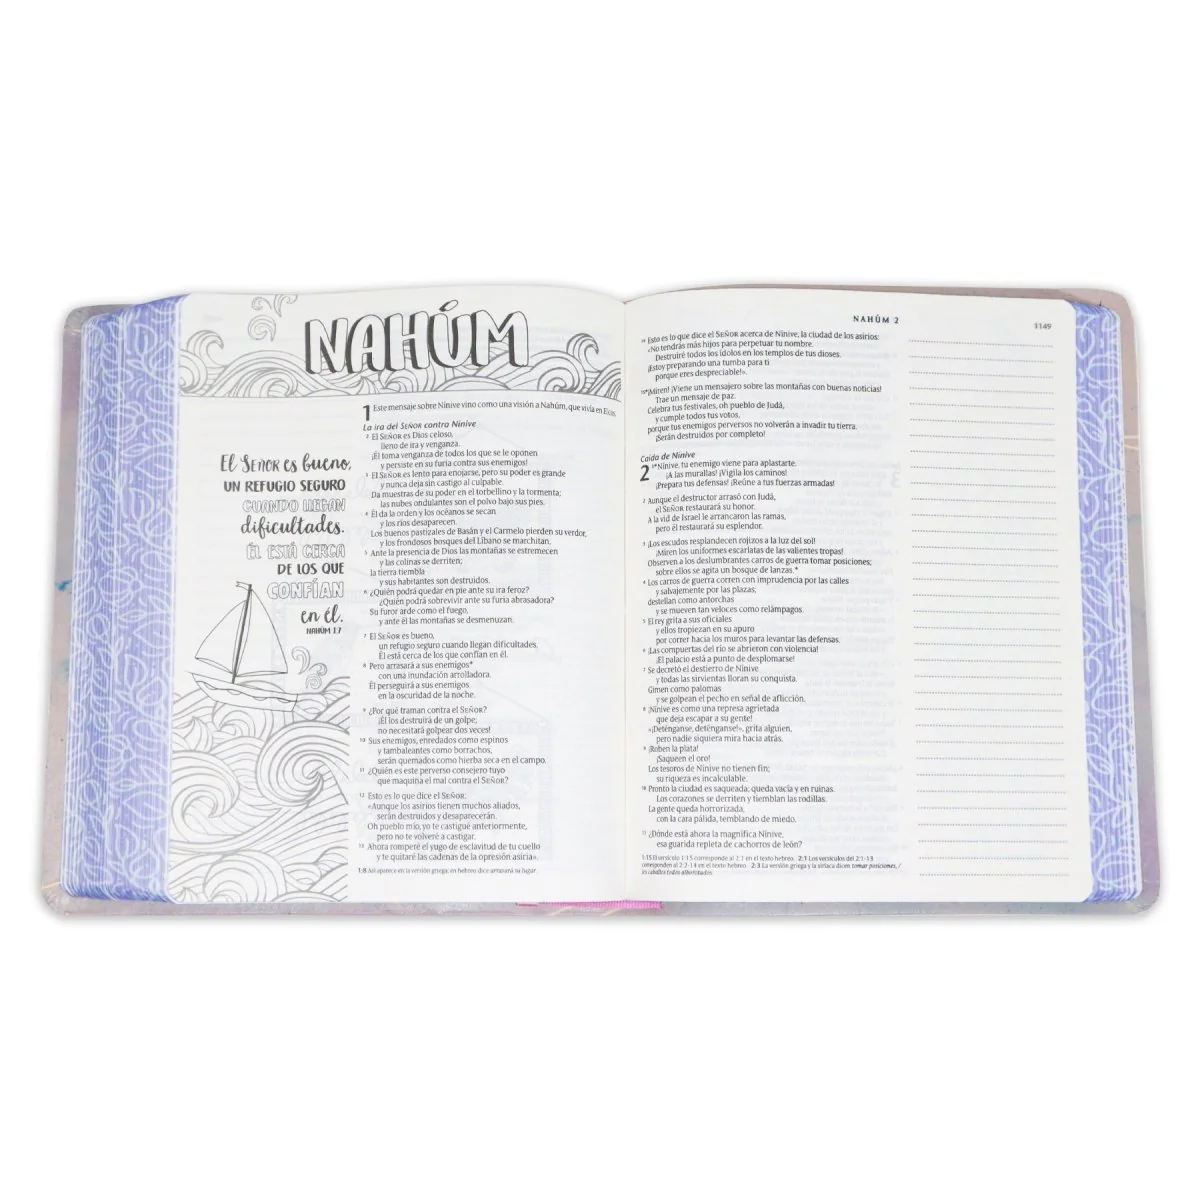 NAHÚM
El SEÑOR es bueno,
UN REFUGIO SEGURO
CUANDO LLEGAN
dificultades.
ÉL ESTÁ CERCA
DE LOS QUE
CONFÍAN
en él.
NAHÚM 1:7
1 Este mensaje sobre Nínive vino como una visión a Nahúm, que vivía en
La ira del SEÑOR contra Nínive
2 El SEÑOR es Dios celoso,
lleno de ira y venganza.
¡Él toma venganza de todos los que se le oponen
y persiste en su furia contra sus enemigos!
3 El SEÑOR es lento para enojarse, pero su poder es grande
y nunca deja sin castigo al culpable.
Da muestras de su poder en el torbellino y la tormenta;
las nubes ondulantes son el polvo bajo sus pies.
4 Él da la orden y los océanos se secan
y los ríos desaparecen.
Los buenos pastizales de Basán y el Carmelo pierden su verdor,
y los frondosos bosques del Líbano se marchitan.
5 Ante la presencia de Dios las montañas se estremecen
y las colinas se derriten;
la tierra tiembla
y sus habitantes son destruidos.
6 ¿Quién podrá quedar en pie ante su ira feroz?
¿Quién podrá sobrevivir ante su furia abrasadora?
Su furor arde como el fuego,
y ante él las montañas se desmenuzan.
7 El SEÑOR es bueno,
un refugio seguro cuando llegan dificultades.
Él está cerca de los que confían en él.
8 Pero arrasará a sus enemigos*
con una inundación arrolladora.
Él perseguirá a sus enemigos
en la oscuridad de la noche.
9 ¿Por qué traman contra el SEÑOR?
¡Él los destruirá de un golpe;
no necesitará golpear dos veces!
10 Sus enemigos, enredados como espinos
y tambaleantes como borrachos,
serán quemados como hierba seca en el campo.
11 ¿Quién es este perverso consejero tuyo
que maquina el mal contra el SEÑOR?
12 Esto es lo que dice el SEÑOR:
«Aunque los asirios tienen muchos aliados,
serán destruidos y desaparecerán.
Oh pueblo mío, yo te castigué anteriormente,
pero no te volveré a castigar.
13 Ahora romperé el yugo de esclavitud de tu cuello
y te quitaré las cadenas de la opresión asiria».
1:8 Así aparece en la versión griega; en hebreo dice arrasará su lugar.
NAHÚM 2
1149
14 Esto es lo que dice el SEÑOR acerca de Nínive, la ciudad de los asirios:
«No tendrás más hijos para perpetuar tu nombre.
Destruiré todos los ídolos en los templos de tus dioses.
¡Estoy preparando una tumba para ti
porque eres despreciable!».
15 *¡Miren! ¡Viene un mensajero sobre las montañas con buenas noticias!
Trae un mensaje de paz.
Celebra tus festivales, oh pueblo de Judá,
y cumple todos tus votos,
porque tus enemigos perversos no volverán a invadir tu tierra.
¡Serán destruidos por completo!
Caída de Nínive
2 1 *Nínive, tu enemigo viene para aplastarte.
¡A las murallas! ¡Vigila los caminos!
¡Prepara tus defensas! ¡Reúne a tus fuerzas armadas!
2 Aunque el destructor arrasó con Judá,
el SEÑOR restaurará su honor.
A la vid de Israel le arrancaron las ramas,
pero él restaurará su esplendor.
3 ¡Los escudos resplandecen rojizos a la luz del sol!
¡Miren los uniformes escarlatas de las valientes tropas!
Observen a los deslumbrantes carros de guerra tomar posiciones;
sobre ellos se agita un bosque de lanzas.*
4 Los carros de guerra corren con imprudencia por las calles
y salvajemente por las plazas;
destellan como antorchas
y se mueven tan veloces como relámpagos.
5 El rey grita a sus oficiales
y ellos tropiezan en su apuro
por correr hacia los muros para levantar las defensas.
6 ¡Las compuertas del río se abrieron con violencia!
¡El palacio está a punto de desplomarse!
7 Se decretó el destierro de Nínive
y todas las sirvientas lloran su conquista.
Gimen como palomas
y se golpean el pecho en señal de aflicción.
8 ¡Nínive es como una represa agrietada
que deja escapar a su gente!
«¡Deténganse, deténganse!», grita alguien,
pero nadie siquiera mira hacia atrás.
9 ¡Roben la plata!
¡Saqueen el oro!
Los tesoros de Nínive no tienen fin;
su riqueza es incalculable.
10 Pronto la ciudad es saqueada, queda vacía y en ruinas.
Los corazones se derriten y tiemblan las rodillas.
La gente queda horrorizada,
con la cara pálida, temblando de miedo.
11 ¿Dónde está ahora la magnífica Nínive,
esa guarida repleta de cachorros de león?
1:15 El versículo 1:15 corresponde al 2:1 en el texto hebreo. 2:1 Los versículos del 2:1-13
corresponden al 2:2-14 en el texto hebreo. 2:3 La versión griega y la siríaca dicen tomar posiciones, /
los caballos todos alborotados.